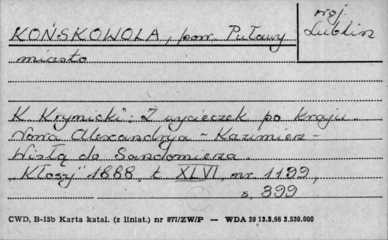 KOŃSKOWOLA, pow. Puławy
woj.
Lublin
miasto
K. Krynicki: Z wycieczek po kraju.
Nowa Alexandryja - Kazimierz -
Wisłą do Sandomierza.
"Kłosy" 1888, t. XLVI, nr. 1199,
s. 399
CWD, B-15b Karta katal. (z liniat.) nr 877/ZW/P — WDA 29 13.5.66 3.530.000